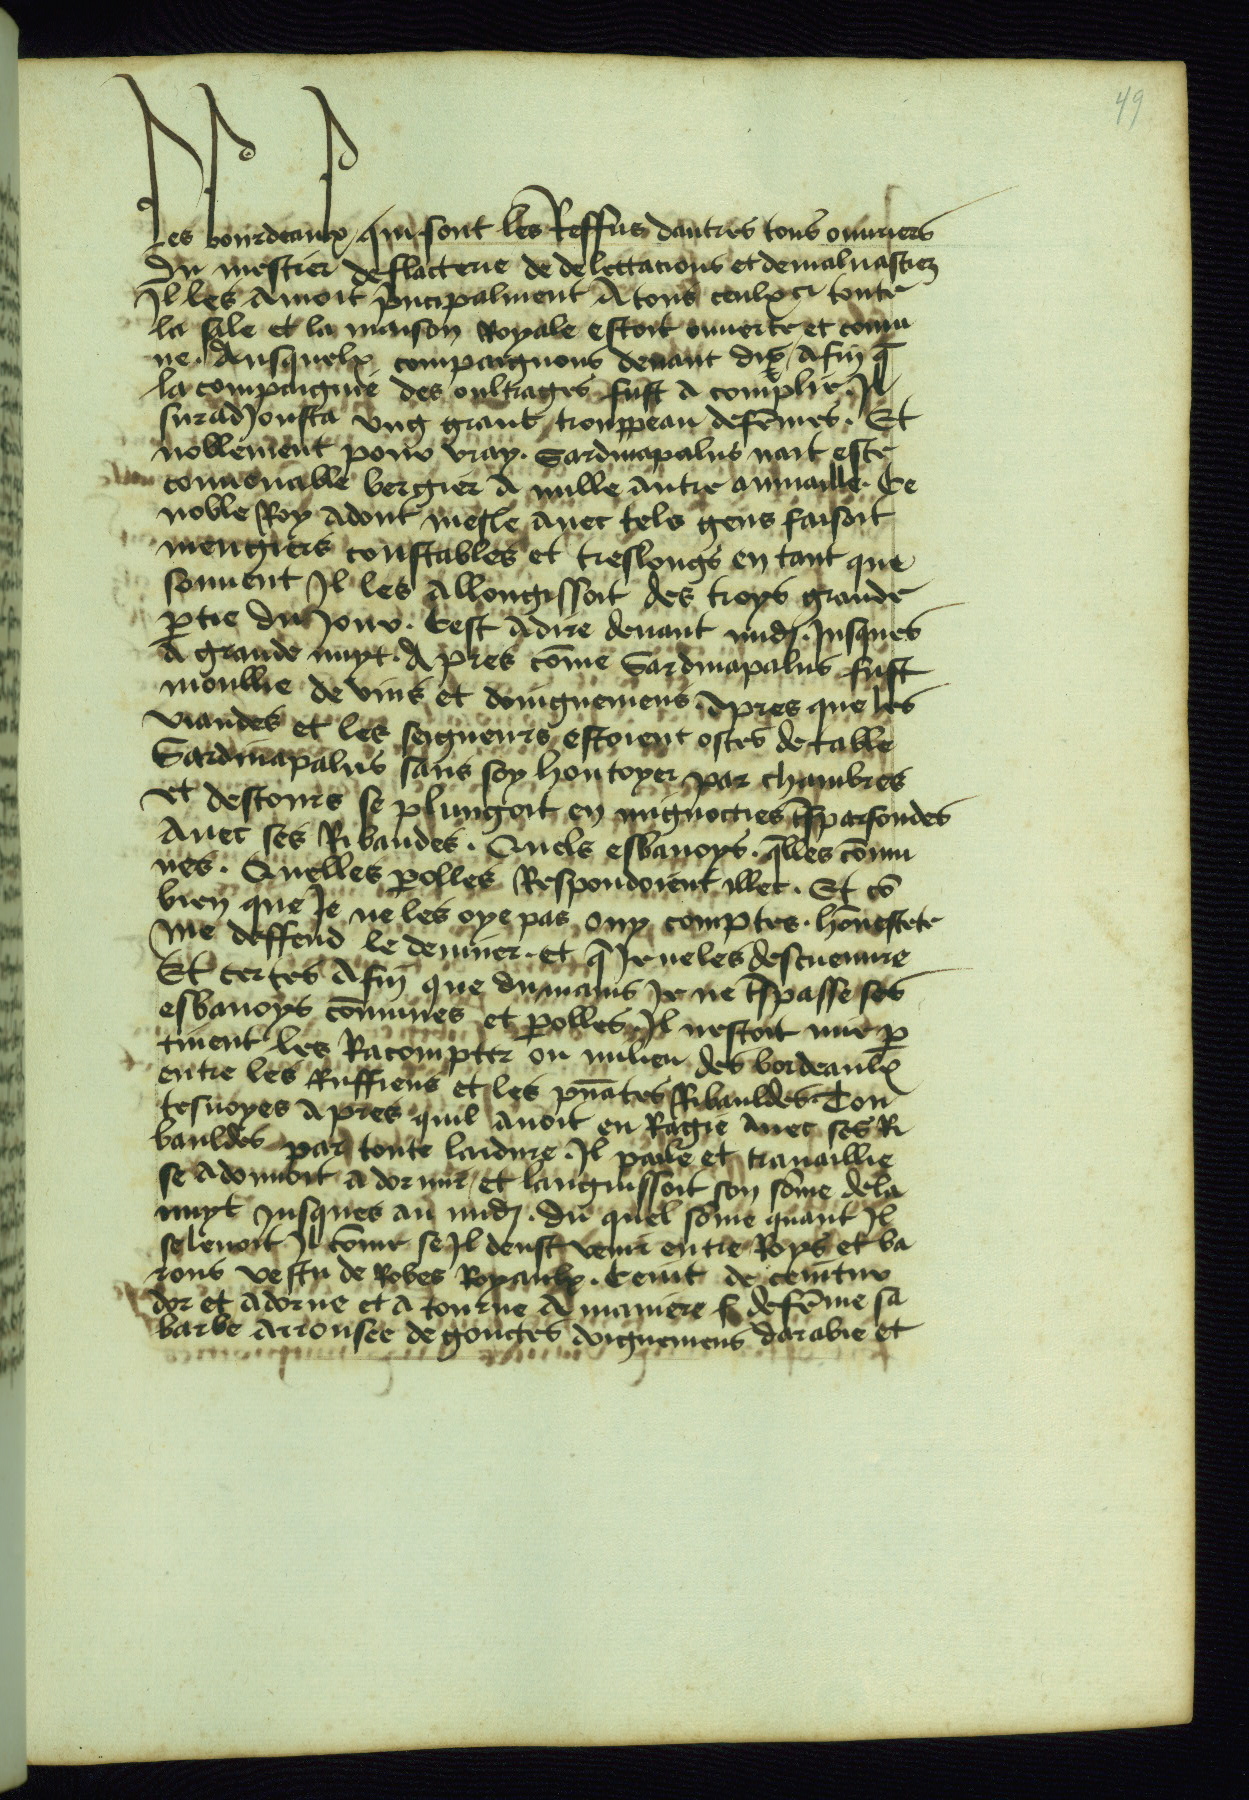 49
Les bourdeaulx qui sont les Reffus dautres tous ouuriers
Du mestier de flatterie de delettacions et de maluaistiez
Il les Amoit p̄ncipalment A tous ceulx cy toute
la sale et la maison Royale estoit ouuerte et comu
ne. Ausquelx compaignons deuant dix Afin q̄
la compaignie des oultrages fust A complie. Il
suradJousta vng grant trouppeau de fēmes. Et
noblement pour vray. Sardinapalus nait este
conuenable bergier A nulle Autre aumaille. Ce
noble Roy Adont mesle auec tels gens faisoit
mengiers constables et treslongs en tant que
souuent Il les Allongissoit des troys grande
p̄tie du Jour. Cest Adire deuant midj. Jusques
A grande nuyt. Apres cōme Sardinapalus fust
moullie de vins et doingnemens. Apres que les
viandes et les seigneurs estoient ostes de table
Sardinapalus sans soy hontoyer par chambres
et destours se plungoit en mignotties t̄sparfondes
Auec ses Ribaudes. Quels esbanoys. q̄lles cōmu
nes. Quelles p̄olles Respondoient illec. Et cō
bien que Je ne les oye pas ouy comptes. hōnestete
me deffend le deuiner. et q̄ Je ne les descueuure
Et certes Afin que du mains Je ne t̄spasse ses
esbanoys cōmunes et p̄olles. Il nestoit mie p̄
tinent les Racompter ou milieu des bordeaulx
entre les Ruffiens et les pn̄ates Ribauldes Tou
tesuoyes Apres quil Auoit en Ragie Auec ses Ri
bauldes par toute laidure. Il paile et trauaillie
se Adonnoit A dormir et languissoit son sōme de la
nuyt Jusques au midj. Du quel sōme quant Il
se leuoit Il cōme se Il deust venir entre Roys et ba
rons vestu de Robes Royaulx. Ceint de ceintur
dor et Adorne et A tourne A maniere de fēme sa
barbe Arrousee de goutes doignemens darabie et